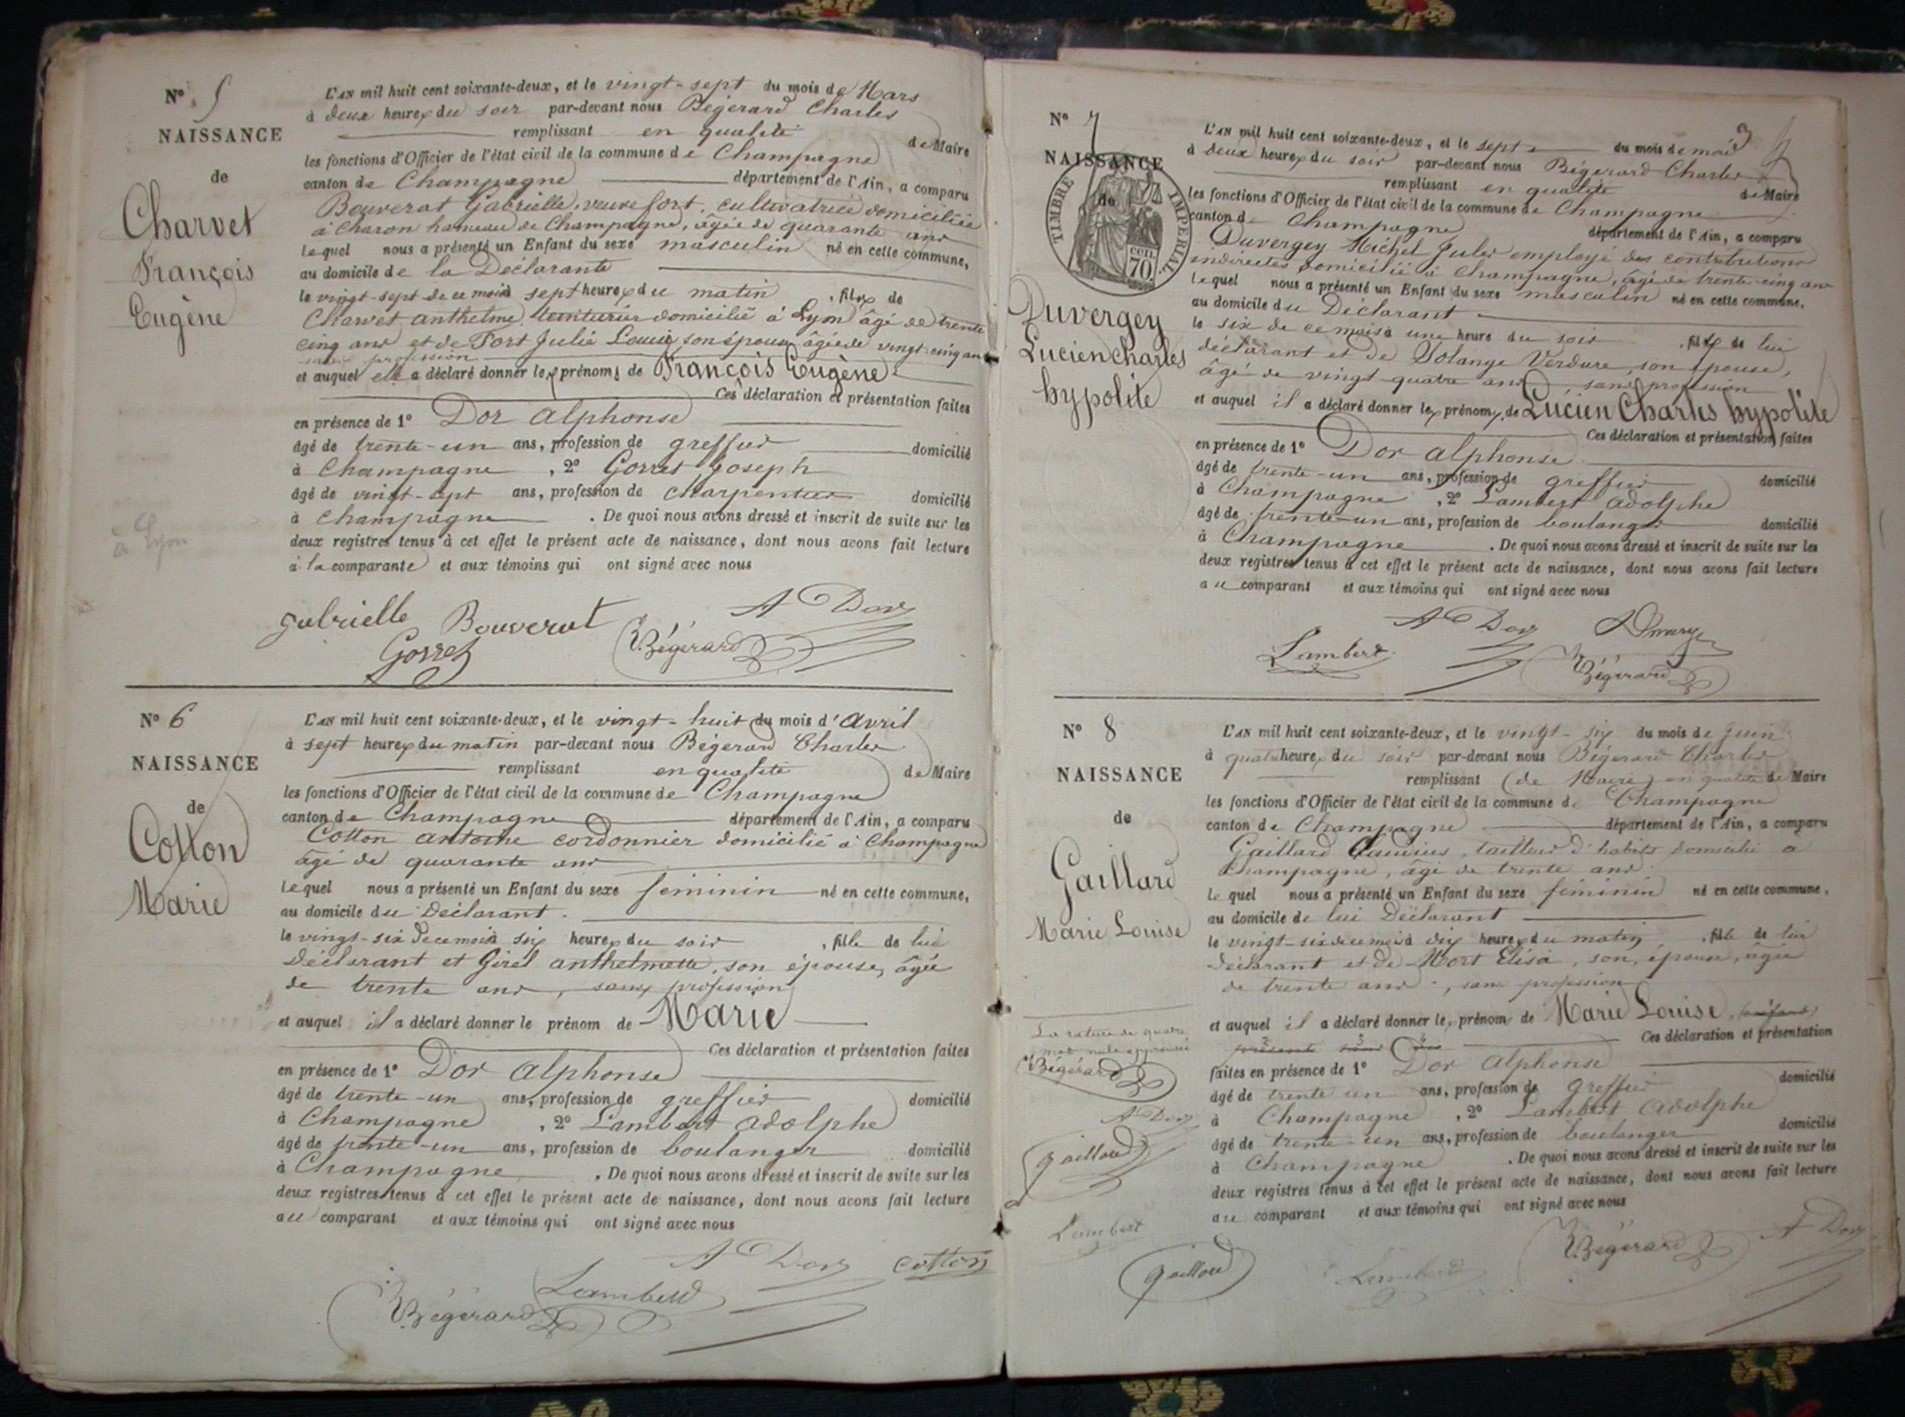 N° 5
NAISSANCE
de
Charvet
François
Eugène
à Lyon
L'AN mil huit cent soixante-deux, et le vingt-sept du mois de Mars
à deux heures du soir par-devant nous Bégerard Charles
remplissant en qualité de Maire
les fonctions d'Officier de l'état civil de la commune de Champagne
canton de Champagne département de l'Ain, a comparu
Bouverat Gabrielle, veuve fort, cultivatrice domiciliée
à Charon hameau de Champagne, âgée de quarante ans
Lequel nous a présenté un Enfant du sexe masculin né en cette commune,
au domicile de la Déclarante
le vingt-sept de ce mois à sept heures du matin, fils de
Charvet anthelme, teinturier domicilié à Lyon âgé de trente
cinq ans et de Port Julie Louise, son épouse âgée de vingt cinq ans
sans profession
et auquel elle a déclaré donner les prénoms de François Eugène
Ces déclaration et présentation faites
en présence de 1° Dor alphonse
âgé de trente-un ans, profession de greffier domicilié
à Champagne, 2° Gorret Joseph
âgé de vingt-sept ans, profession de charpentier domicilié
à Champagne. De quoi nous avons dressé et inscrit de suite sur les
deux registres tenus à cet effet le présent acte de naissance, dont nous avons fait lecture
à la comparante et aux témoins qui ont signé avec nous
Gabrielle Bouverat A Dor
Gorret Bégerard
N° 6
NAISSANCE
de
Cotton
Marie
L'AN mil huit cent soixante-deux, et le vingt-huit du mois d'avril
à sept heures du matin par-devant nous Bégerard Charles
remplissant en qualité de Maire
les fonctions d'Officier de l'état civil de la commune de Champagne
canton de Champagne département de l'Ain, a comparu
Cotton antoine cordonnier domicilié à Champagne
âgé de quarante ans
Lequel nous a présenté un Enfant du sexe féminin né en cette commune,
au domicile du Déclarant.
le vingt-six de ce mois à six heures du soir, fille de lui
Déclarant et Girel anthelmette, son épouse, âgée
de trente ans, sans profession
et auquel il a déclaré donner le prénom de Marie
Ces déclaration et présentation faites
en présence de 1° Dor alphonse
âgé de trente-un ans, profession de greffier domicilié
à Champagne, 2° Lambert adolphe
âgé de trente-un ans, profession de boulanger domicilié
à Champagne. De quoi nous avons dressé et inscrit de suite sur les
deux registres tenus à cet effet le présent acte de naissance, dont nous avons fait lecture
au comparant et aux témoins qui ont signé avec nous
A Dor Cotton
Bégerard Lambert
3
N° 7
NAISSANCE
de
TIMBRE IMPÉRIAL
CEN. 70
Duvergey
Lucien Charles
hypolite
L'AN mil huit cent soixante-deux, et le sept du mois de mai
à deux heures du soir par-devant nous Bégerard Charles
remplissant en qualité de Maire
les fonctions d'Officier de l'état civil de la commune de Champagne
canton de Champagne département de l'Ain, a comparu
Duvergey Michel Jules employé des contributions
indirectes domicilié à Champagne, âgé de trente cinq ans
Lequel nous a présenté un Enfant du sexe masculin né en cette commune,
au domicile du Déclarant
le six de ce mois à une heure du soir, fils de lui
déclarant et de Solange Verdure, son épouse,
âgé de vingt-quatre ans, sans profession
et auquel il a déclaré donner les prénoms de Lucien Charles hypolite
Ces déclaration et présentation faites
en présence de 1° Dor alphonse
âgé de trente-un ans, profession de greffier domicilié
à Champagne, 2° Lambert adolphe
âgé de trente-un ans, profession de boulanger domicilié
à Champagne. De quoi nous avons dressé et inscrit de suite sur les
deux registres tenus à cet effet le présent acte de naissance, dont nous avons fait lecture
au comparant et aux témoins qui ont signé avec nous
A Dor
Lambert Bégerard
N° 8
NAISSANCE
de
Gaillard
Marie Louise
La rature de quatre
mots nuls approuvé
Bégerard
A Dor
Gaillard
Lambert
L'AN mil huit cent soixante-deux, et le vingt-six du mois de juin
à quatre heures du soir par-devant nous Bégerard Charles
remplissant (de Maire) en qualité de Maire
les fonctions d'Officier de l'état civil de la commune de Champagne
canton de Champagne département de l'Ain, a comparu
Gaillard Claudius, tailleur d'habits domicilié à
Champagne, âgé de trente ans
Lequel nous a présenté un Enfant du sexe féminin né en cette commune,
au domicile de lui Déclarant
le vingt-six de ce mois à dix heures du matin, fille de lui
déclarant et de Mort Elisa, son épouse, âgée
de trente ans, sans profession
et auquel il a déclaré donner les prénoms de Marie Louise
Ces déclaration et présentation
faites en présence de 1° Dor alphonse
âgé de trente un ans, profession de greffier domicilié
à Champagne, 2° Lambert adolphe
âgé de trente-un ans, profession de boulanger domicilié
à Champagne. De quoi nous avons dressé et inscrit de suite sur les
deux registres tenus à cet effet le présent acte de naissance, dont nous avons fait lecture
au comparant et aux témoins qui ont signé avec nous
Bégerard A Dor
Gaillard Lambert